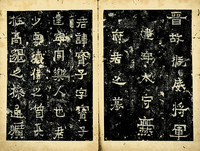 晉故振威將軍
建寧太守爨
府君之墓
君諱寶子字寶子
建寧同樂人也君
少稟瓌偉之質長
挺高邈之操通曠